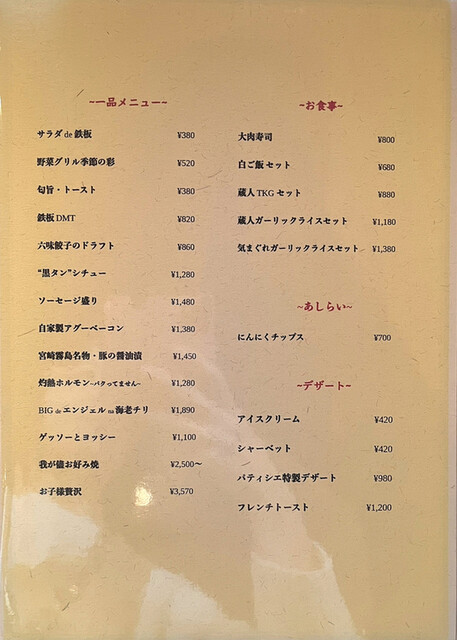 ~一品メニュー~
サラダ de 鉄板 ¥380
野菜グリル季節の彩 ¥520
旬旨・トースト ¥380
鉄板 DMT ¥820
六味餃子のドラフト ¥860
“黒タン”シチュー ¥1,280
ソーセージ盛り ¥1,480
自家製アグーベーコン ¥1,380
宮崎霧島名物・豚の醤油漬 ¥1,450
灼熱ホルモン~パクってません~ ¥1,280
BIG de エンジェル na 海老チリ ¥1,890
ゲッソーとヨッシー ¥1,100
我が儘お好み焼 ¥2,500〜
お子様贅沢 ¥3,570
~お食事~
大肉寿司 ¥800
白ご飯セット ¥680
蔵人 TKG セット ¥880
蔵人ガーリックライスセット ¥1,180
気まぐれガーリックライスセット ¥1,380
~あしらい~
にんにくチップス ¥700
~デザート~
アイスクリーム ¥420
シャーベット ¥420
パティシエ特製デザート ¥980
フレンチトースト ¥1,200